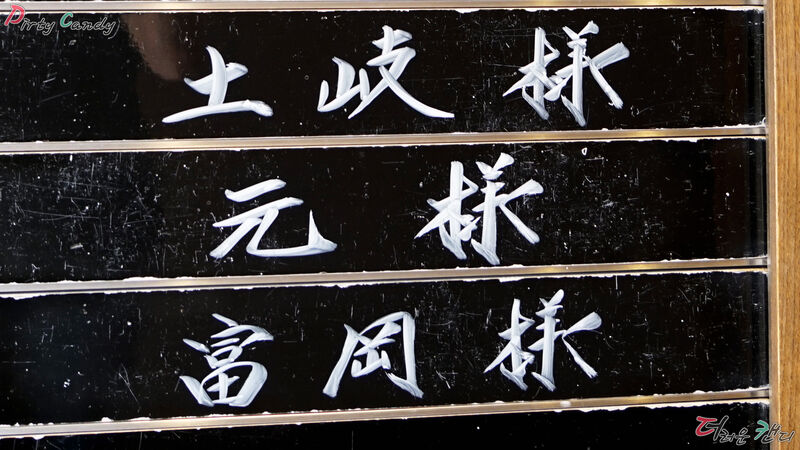 Dirty Candy
土岐様
元様
富岡様
더러운 캔디